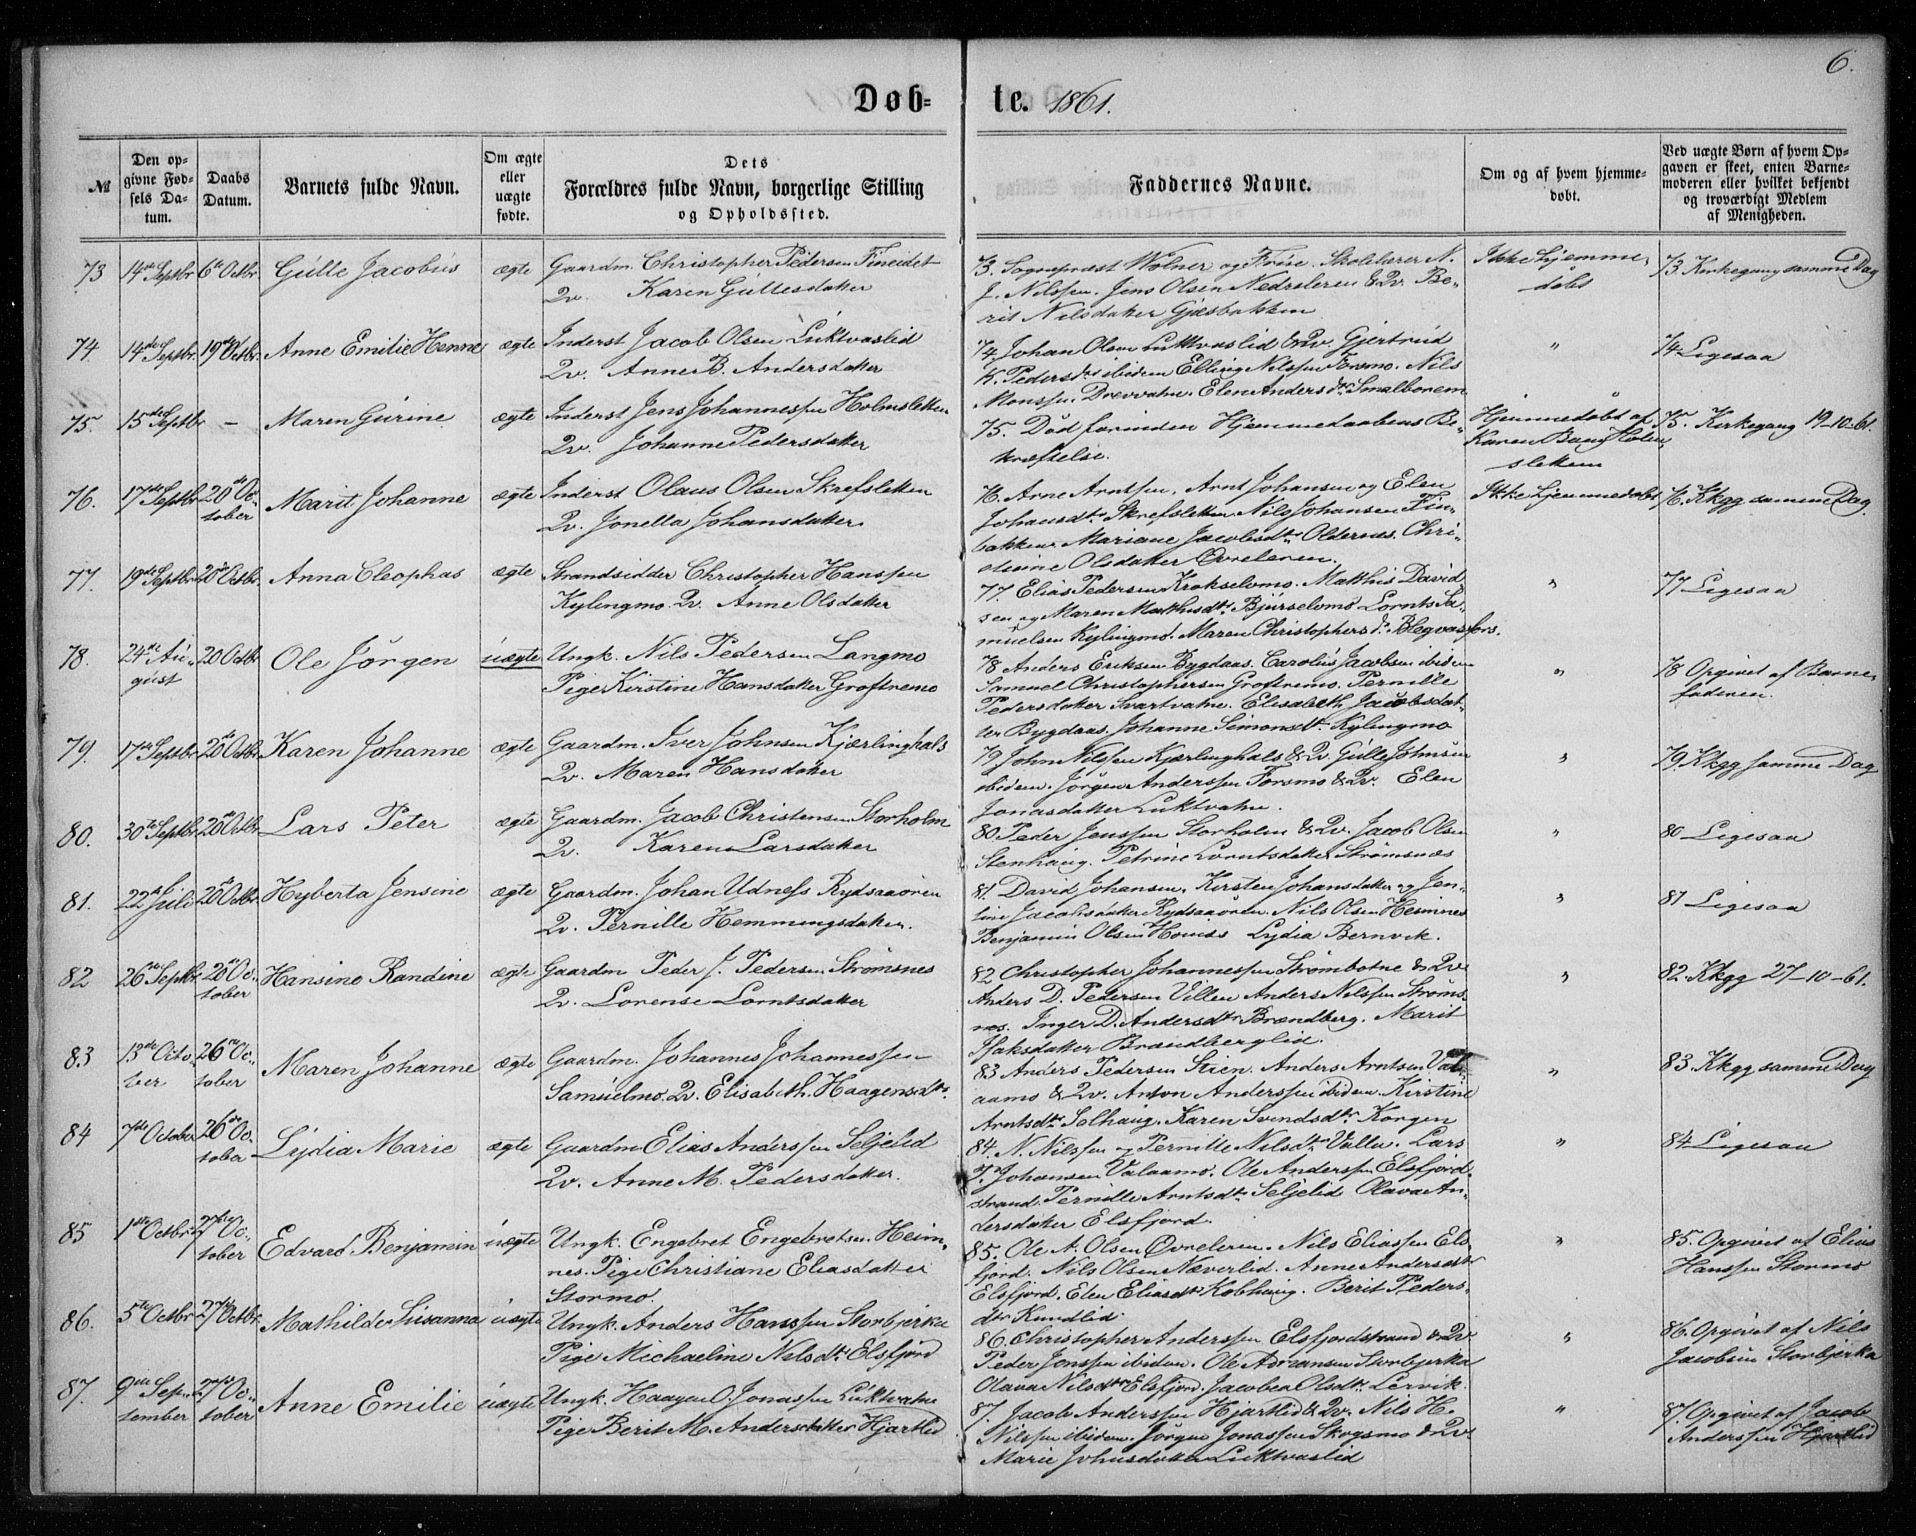 6.
Døb-
te. 1861.
№
Den op-
givne Fød-
sels Da-
tum.
Daabs
Datum.
Barnets fulde Navn.
Om ægte
eller
uægte
fødte.
Dets
Forældres fulde Navn, borgerlige Stilling
og Opholdssted.
Faddernes Navne.
Om og af hvem hjemme-
døbt.
Ved uægte Børn af hvem Op-
gaven er skeet, enten Barne-
moderen eller hvilket bekjendt
og troværdigt Medlem
af Menigheden.
73
14de Septbr
6te Octbr
Gulle Jacobus
ægte
Gaardm. Christopher Pedersen Fineidet
Qv. Karen Gullesdatter
73. Sognepræst Wolner og Frue. Skolelærer N.
J. Nilssen. Jens Olsen Nedreleren & Qv. Be-
rit Nilsdatter Gjæsbakken
Ikke hjemme-
døbt
73. Kirkegang samme Dag
74
14de Septbr.
19de Octbr.
Anne Emilie Henne
ægte
Inderst Jacob Olsen Luktvaslid
Qv. Anne B. Andersdatter
74. Johan Olsen Luktvaslid & Qv. Gjertrud
K. Pedersdtr ibidem Elling Nilssen Forsmo. Nils
Monssen Drevvatne. Elen Andersdtr Smalborem
"
74 Ligesaa
75.
15de Septbr
-
Maren Gurine
ægte
Inderst Jens Johannessen Holmsletten
Qv. Johanne Pedersdatter
75. Død forinden Hjemmedaabens Be-
kræftelse.
Hjemmedøbt af
Karen Baug Holm-
sletten
75. Kirkegang 19-10-61.
76.
17de Septbr
20de Oc-
tober
Marit Johanne
ægte
Inderst Olaus Olsen Skrefsletten
Qv. Jonella Johansdatter
76. Arne Arntsen, Arnt Johansen og Elen
Johansdtr Skrefsletten Nils Johansen Fin-
bakken Mariane Jacobsdtr Oldernes. Chri-
stine Olsdatter Øvreleren.
Ikke hjemmedøbt
76. Kkgg samme Dag.
77.
19de Septbr
20de Octbr.
Anna Cleophas
ægte
Strandsidder Christopher Hanssen
Kylingmo. Qv. Anne Olsdatter
77 Elias Pedersen Krokselvmo. Matthis David-
sen og Maren Matthisdtr Bjurselvmo Lornts Sa-
muelsen Kylingmo. Maren Christophersdr. Blegvasfors.
"
77 Ligesaa
78.
24de Au-
gust
20 Octbr
Ole Jørgen
uægte
Ungk. Nils Pedersen Langmo
Pige Kirstine Hansdatter Groftremo
78 Anders Eriksen Bygdaas. Carolus Jacobsen ibidem
Samuel Christophersen Groftremo. Pernille
Pedersdatter Svartvatne. Elisabeth Jacobsdat-
ter Bygdaas. Johanne Simonsdtr Kylingmo
"
78 Opgivet af Barne-
faderen.
79.
17de Septbr
20de Octbr.
Karen Johanne
ægte
Gaardm. Iver Johnsen Kjærlinghals
Qv. Maren Hansdatter
79 John Nilssen Kjærlinghals & Qv. Gulle Johnsen
ibidem. Jørgen Anderssen Forsmo & Qv. Elen
Jonasdatter Luktvatne.
"
79. Kkgg samme Dag
80.
30te Septbr
20de Octbr
Lars Peter
ægte
Gaardm. Jacob Christensen Storholm
Qv. Karen Larsdatter
80 Peder Jenssen Storholm & Qv. Jacob Olsen
Stenhaug. Petrine Lorntsdatter Strømsnes
"
80 Ligesaa
81.
22de Juli
20de Octbr
Hyberta Jensine
ægte
Gaardm. Johan Udness Rydsaaøren
Qv. Pernille Hemmingsdatter.
81. David Johansen. Kirsten Johansdatter og Jen-
sine Jacobsdatter Rydsaaøren. Nils Olsen Heimnes
Benjamin Olsen Lydia Bernvik.
"
81 Ligesaa
82
26de Septbr.
20de Oc-
tober
Hansine Randine
ægte
Gaardm Peder J. Pedersen Strømsnes
Qv. Lorense Lorntsdatter
82 Christopher Johannessen Strømbotne & Qv.
Anders D. Pedersen Villen Anders Nilssen Strøms-
nes. Inger D. Andersdtr Brændberg. Marit
Isaksdatter Brændberglien.
"
82. Kkgg 27-10-61.
83
13de Octo-
ber
26de Oc-
tober
Maren Johanne
ægte
Gaardm. Johannes Johannessen
Samuelmo. Qv. Elisabeth Haagensdtr.
83 Anders Pedersen Steien. Anders Arntsen Val-
aamo & Qv. Anton Anderssen ibidem Kirstine
Arntsdtr Solhaug. Karen Svendsdtr Korgen
"
83. Kkgg samme Dag
84
7de October
26de Oc-
tober
Lydia Marie
ægte
Gaardm Elias Anderssen Seljelid
Qv. Anne M. Pedersdatter.
84. N. Nilssen og Pernille Nilsdtr Valla. Lars
J. Johansen Valaamo. Ole Anderssen Elsfjord-
strand. Pernille Arntsdtr Seljelid Olava An-
dersdatter Elsfjord.
"
84 Ligesaa
85
1ste Octbr
27de Oc-
tober
Edvard Benjamin
uægte
Ungk. Engebret Engebretsen Heim-
nes. Pige Christiane Eliasdatter
Stormo.
85. Ole A. Olsen Øvreleren. Nils Eliassen Els-
fjord. Nils Olsen Næverlid. Anne Andersdtr
Elsfjord. Elen Eliasdtr Kobhaug. Berit Peders-
dtr Kundlid
"
85. Opgivet af Elias
Hanssen Stormo
86.
5te Octbr
27de Octbr.
Mathilde Susanna
uægte
Ungk. Anders Hanssen Storbjerka
Pige Michaeline Nilsdtr Elsfjord
86. Christopher Anderssen Elsfjordstrand & Qv
Peder Jonssen ibidem. Ole Adriansen Storbjerka
Olava Nilsdtr Elsfjord. Jacobea Olsdtr Lervik.
"
86. Opgivet af Nils
Jacobsen Storbjerka
87.
9de Sep-
tember
27de Oc-
tober
Anne Emilie
uægte
Ungk. Haagen O. Jonassen Luktvatne
Pige Berit M. Andersdatter Hjartlid
87. Jacob Anderssen Hjartlid & Qv. Nils H.
Nilssen ibidem. Jørgen Jonassen Skogsmo & Qv
Marie Johnsdatter Luktvaslid
"
87. Opgivet af Jacob
Anderssen Hjartlid